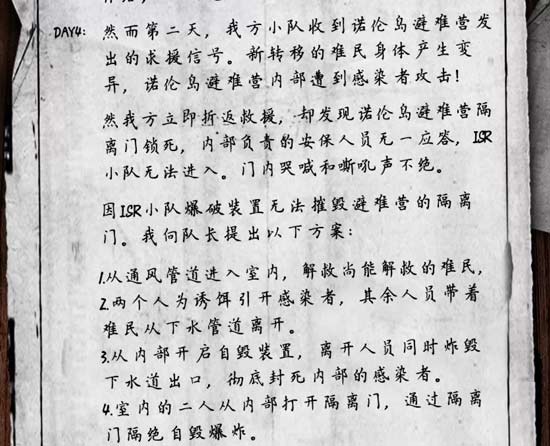 DAY4: 然而第二天，我方小队收到诺伦岛避难营发
出的求援信号。新转移的难民身体产生变
异，诺伦岛避难营内部遭到感染者攻击！
然我方立即折返救援，却发现诺伦岛避难营隔
离门锁死，内部负责的安保人员无一应答，ISR
小队无法进入。门内哭喊和嘶吼声不绝。
因ISR小队爆破装置无法摧毁避难营的隔离
门。我向队长提出以下方案：
1.从通风管道进入室内，解救尚能解救的难民，
2.两个人为诱饵引开感染者，其余人员带着
难民从下水管道离开。
3.从内部开启自毁装置，离开人员同时炸毁
下水道出口，彻底封死内部的感染者。
4.室内的二人从内部打开隔离门，通过隔离
门隔绝自毁爆炸。